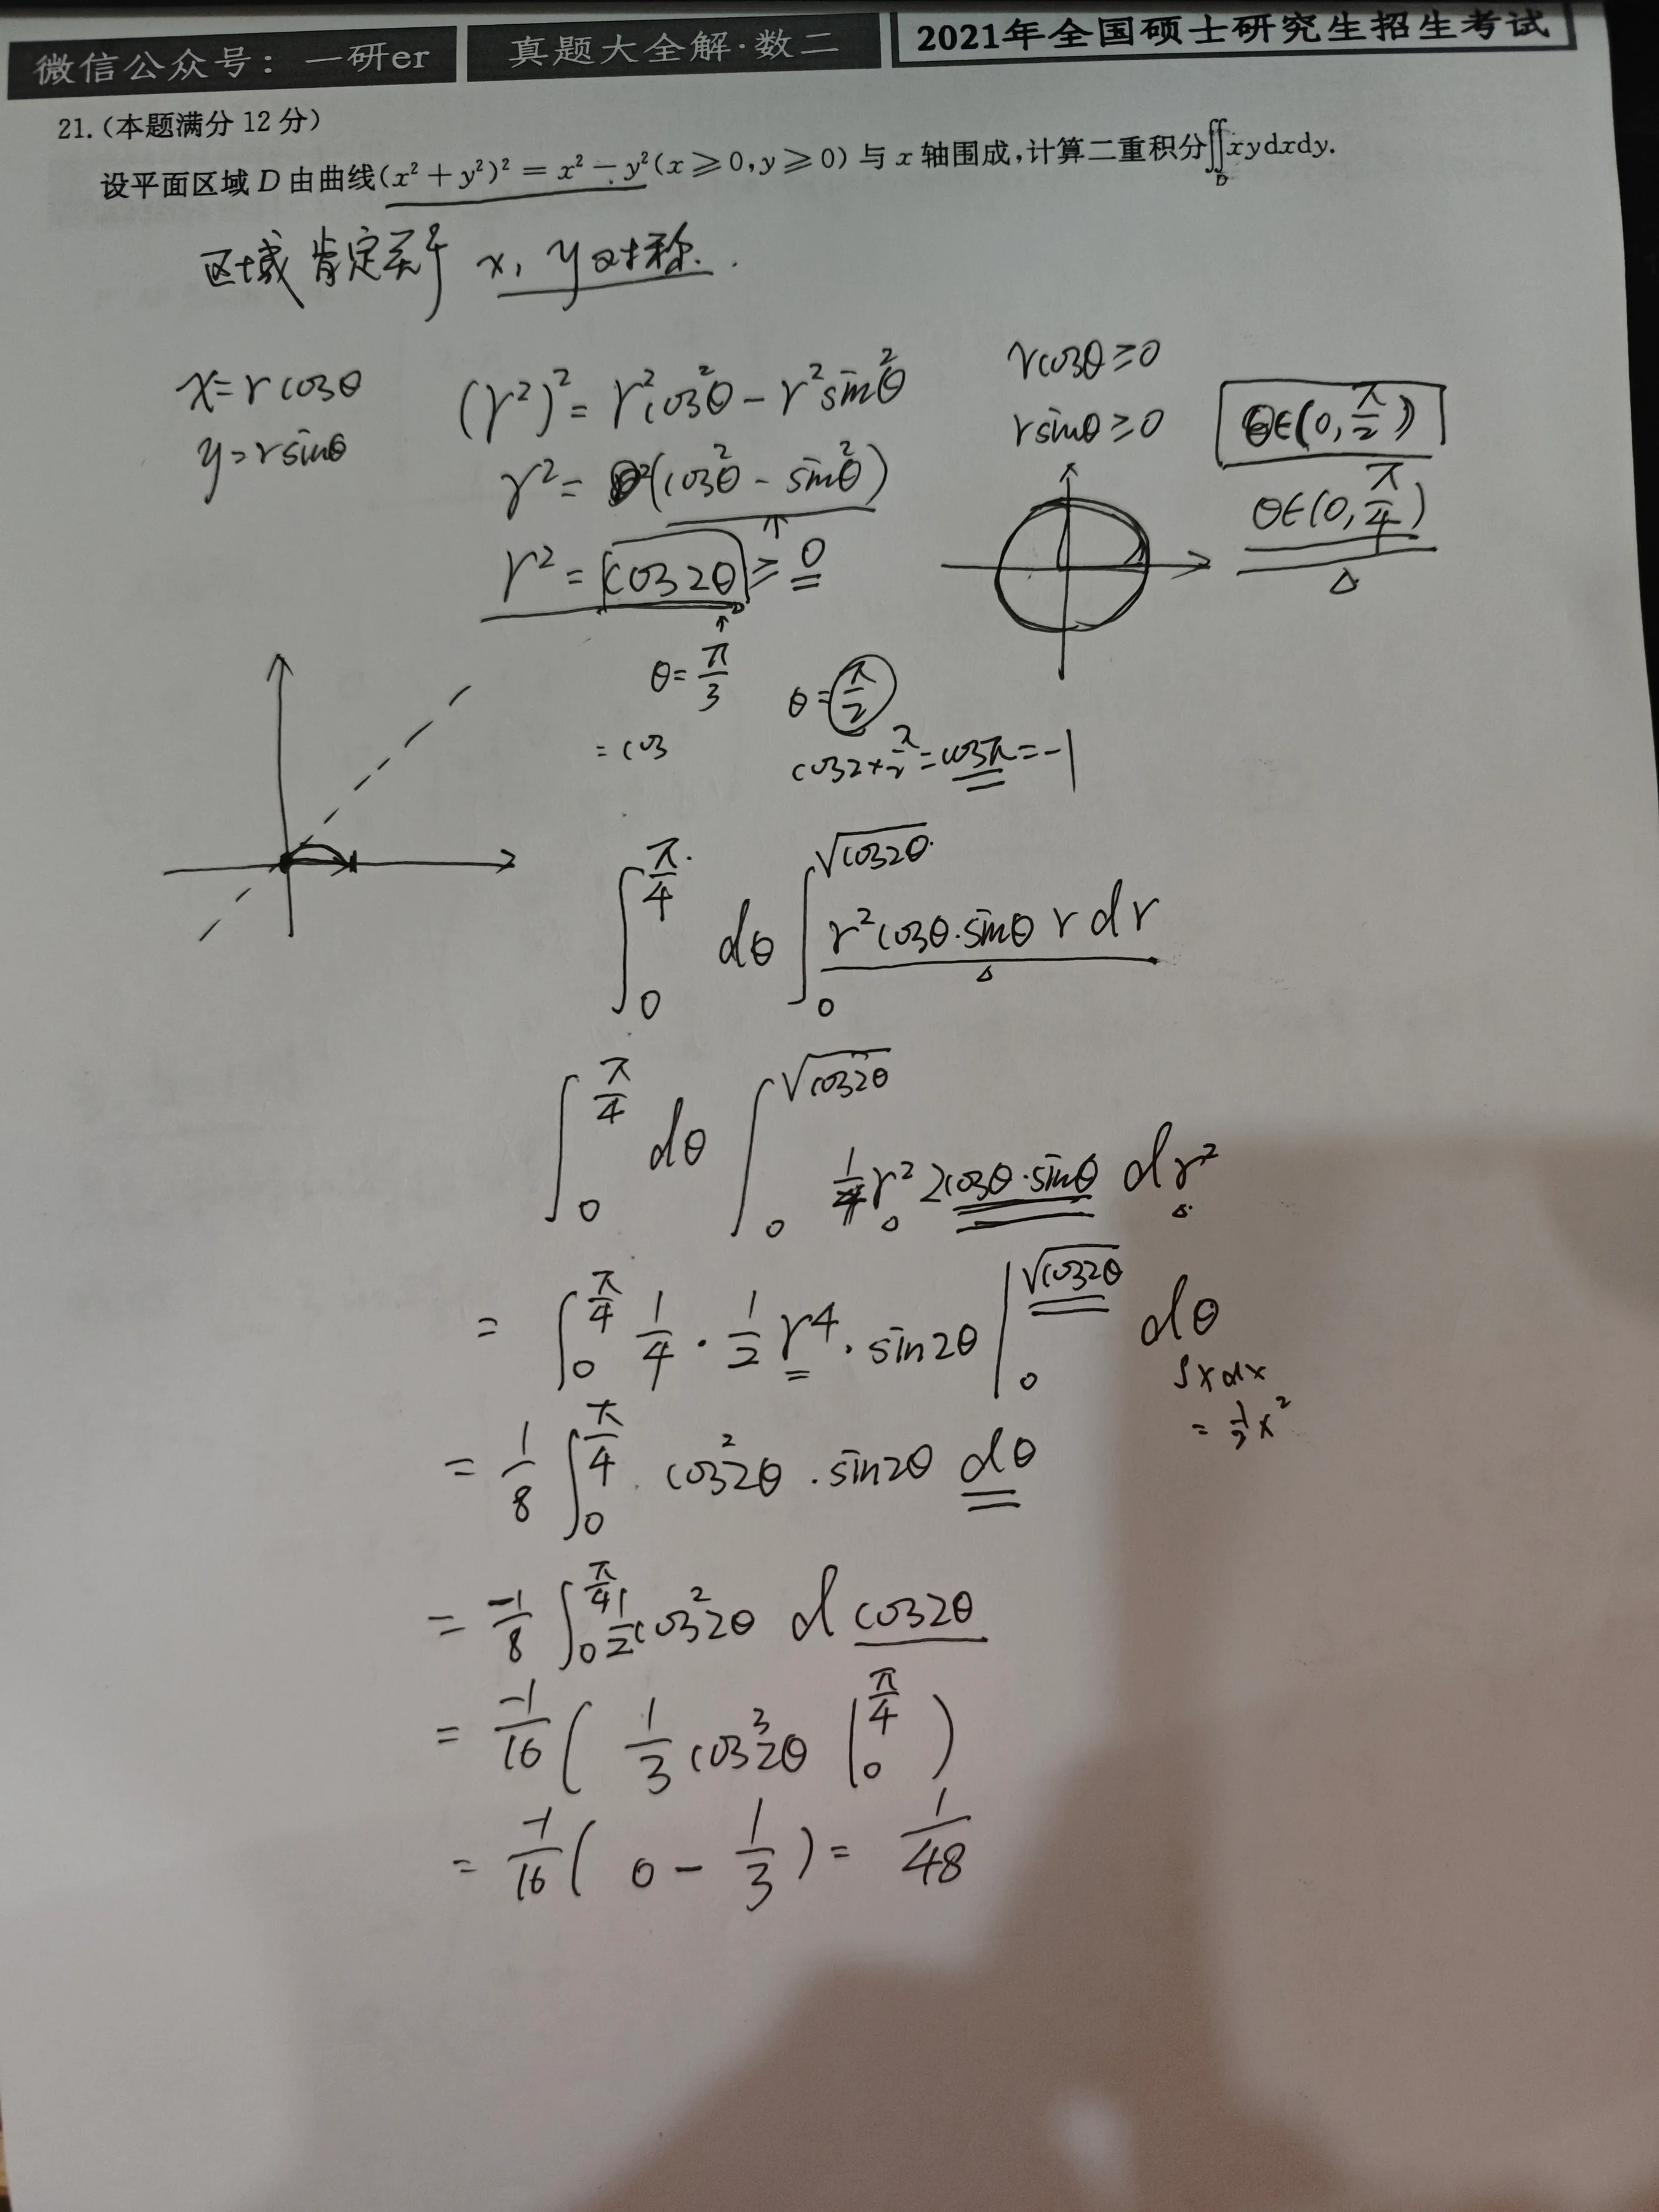 微信公众号：一研er
真题大全解·数二
2021年全国硕士研究生招生考试
21.(本题满分 12 分)
设平面区域 D 由曲线(x² + y²)² = x² − y²(x ⩾ 0, y ⩾ 0) 与 x 轴围成,计算二重积分∬_D xydxdy.
区域肯定关于 x, y对称.
x=rcosθ
y=rsinθ
(r²)² = r²cos²θ − r²sin²θ
r² = (cos²θ − sin²θ)
r² = cos2θ ≥ 0
rcosθ ≥ 0
rsinθ ≥ 0
θ∈(0, π/2)
θ∈(0, π/4)
θ = π/3
= cos
θ = π/2
cos2×π/2 = cosπ = −1
∫_0^{π/4} dθ ∫_0^{√cos2θ} r²cosθ·sinθ r dr
∫_0^{π/4} dθ ∫_0^{√cos2θ} 1/4 r² 2cosθ·sinθ dr²
= ∫_0^{π/4} 1/4 · 1/2 r⁴ · sin2θ |_0^{√cos2θ} dθ
∫xdx
= 1/2 x²
= 1/8 ∫_0^{π/4} cos²2θ · sin2θ dθ
= −1/8 ∫_0^{π/4} 1/2 cos²2θ d cos2θ
= −1/16 ( 1/3 cos³2θ |_0^{π/4} )
= −1/16 ( 0 − 1/3 ) = 1/48